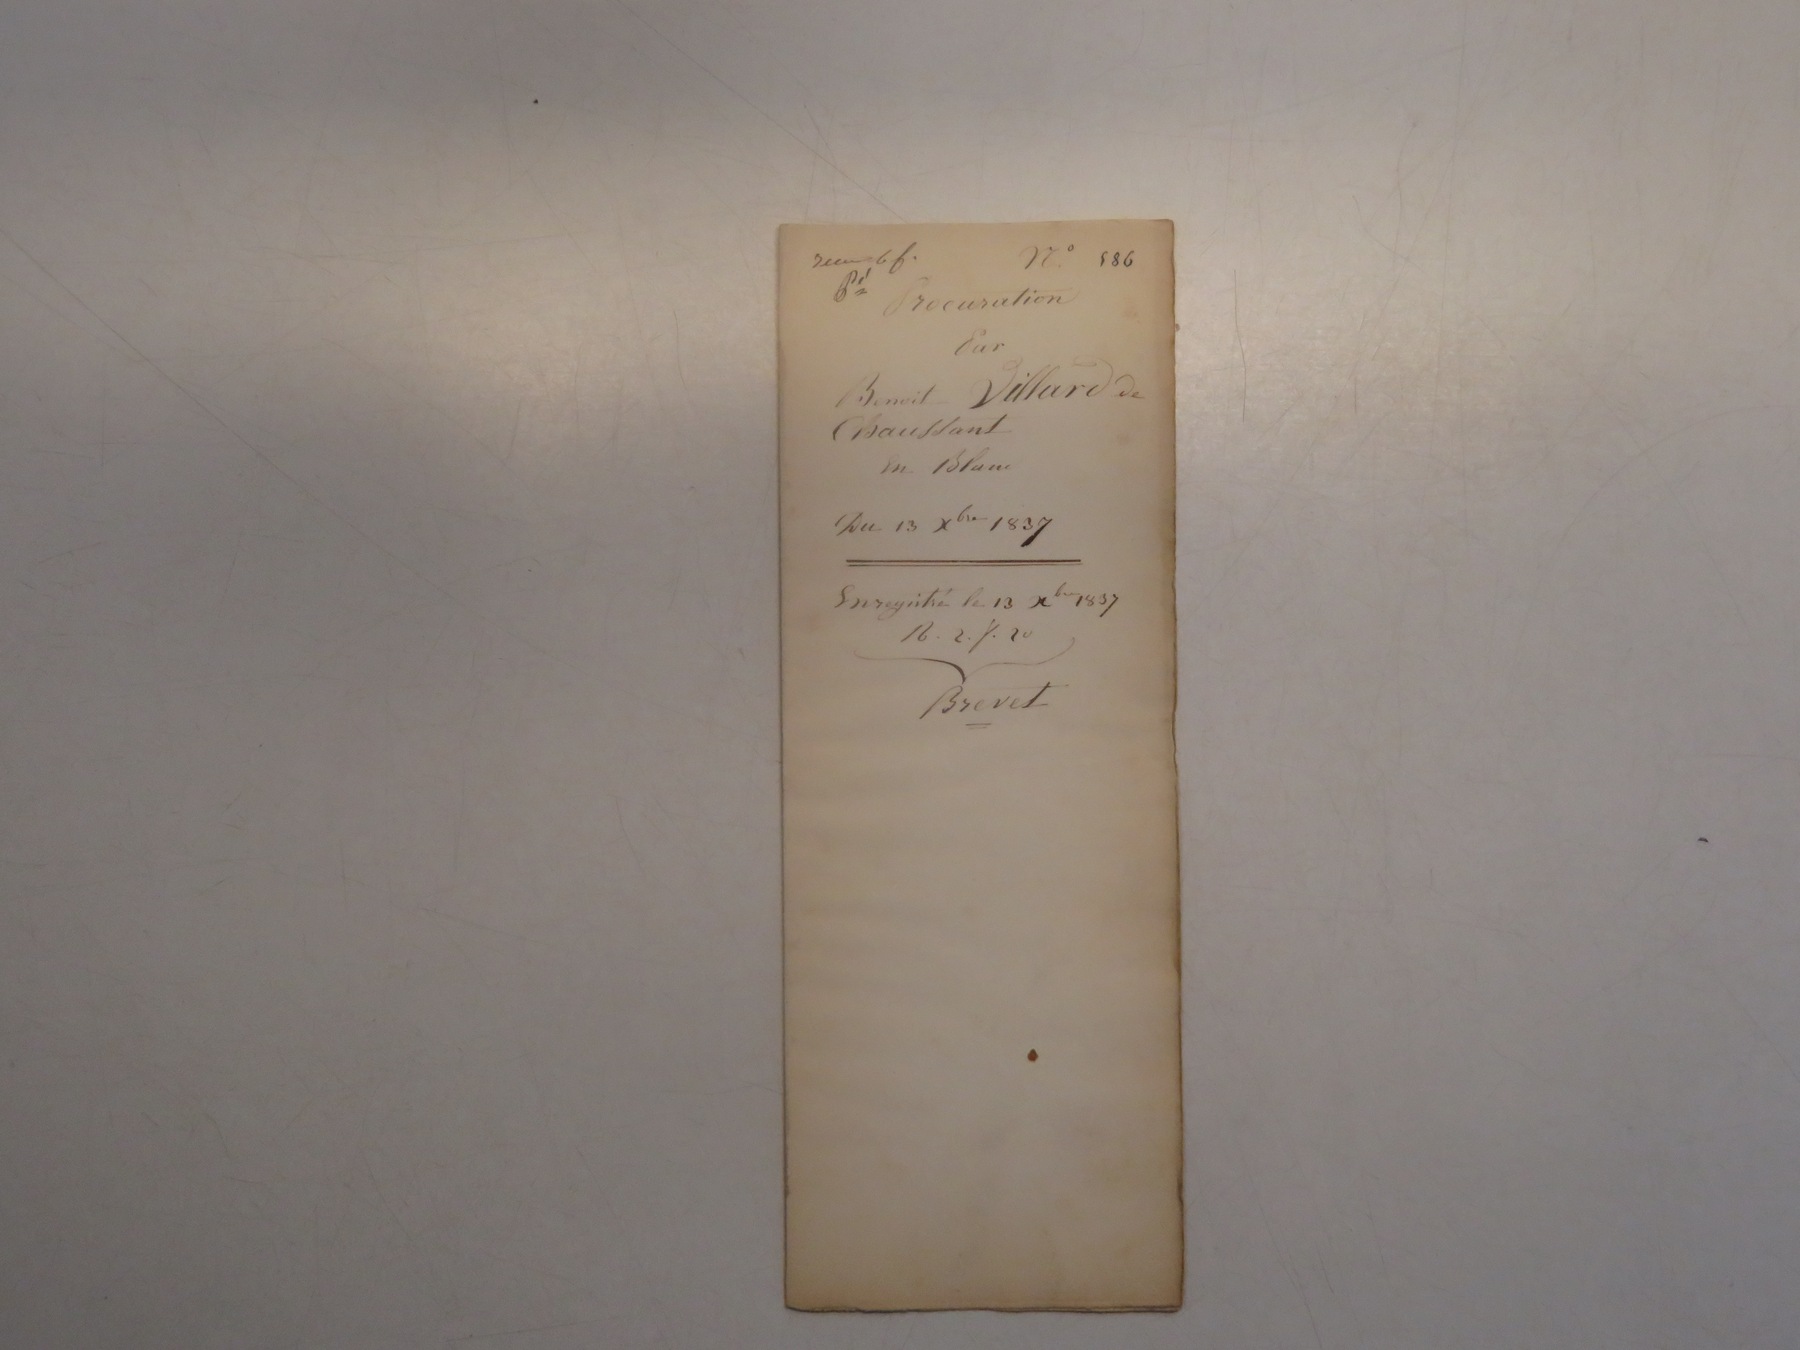 reçu 6 f. N.° 586
Pd
Procuration
Par
Benoit Villard de
Chaussant
En Blanc
Du 13 Xbre 1837
Enregistré le 13 Xbre 1837
R. 2. f. 20
Brevet